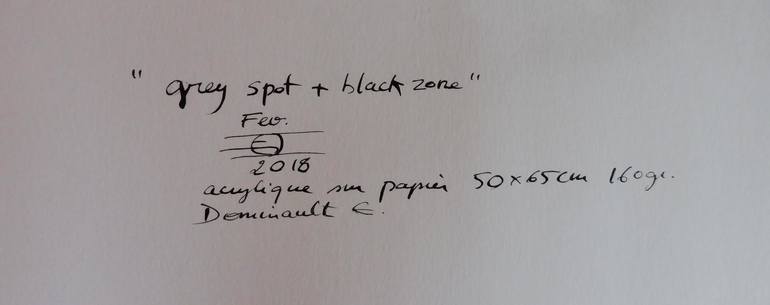 " grey spot + black zone "
Fev.
E
2018
acrylique sur papier 50x65cm 160gr.
Deminault E.